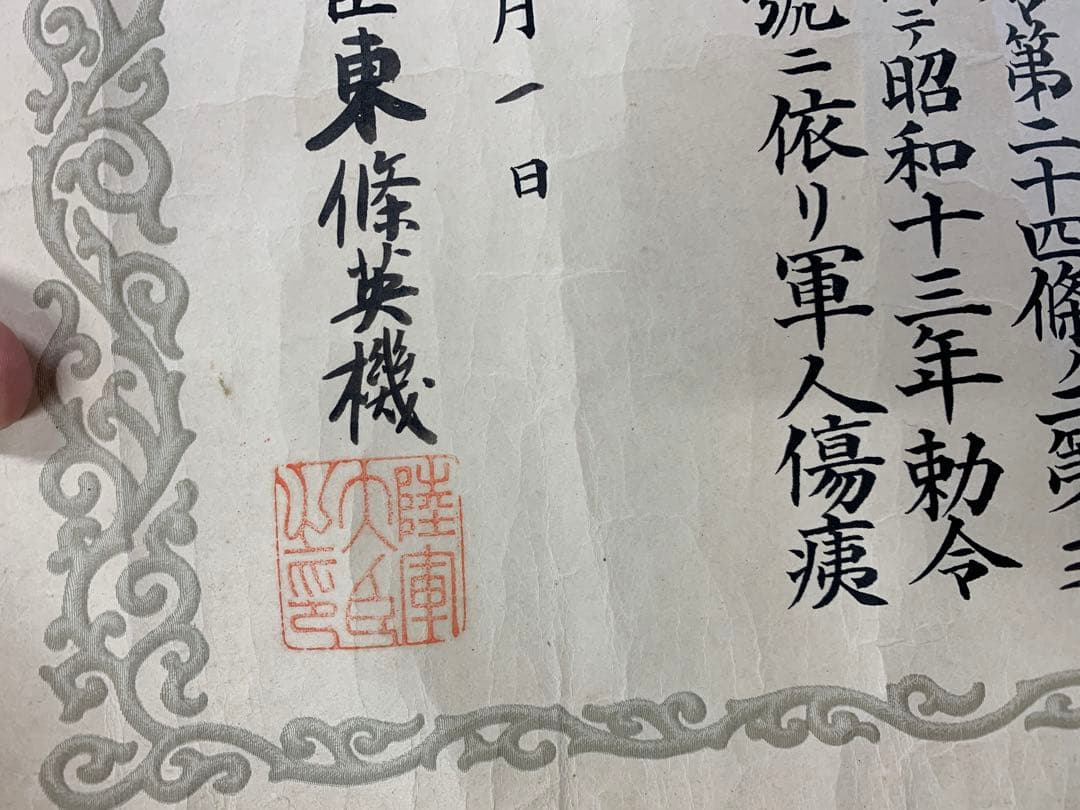 第二十四條ノ二第三
テ昭和十三年勅令
號ニ依リ軍人傷痍
月一日
東條英機
陸軍大臣之印